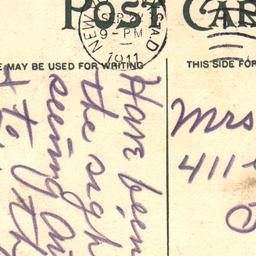 POST CAR
NEW
SEP
AD
9-PM
1911
E MAY BE USED FOR WRITING
THIS SIDE FOR
Have been
the sigh
seeing
Mrs
411